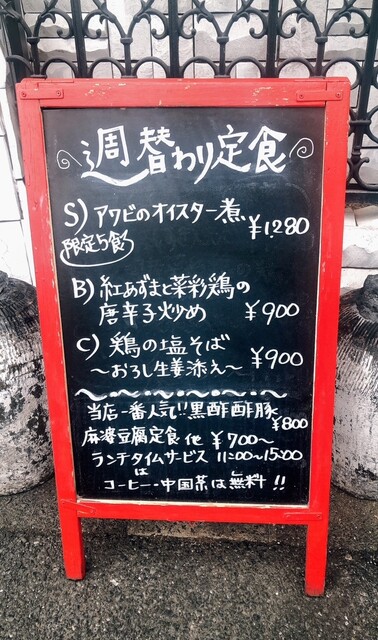 週替わり定食
S) アワビのオイスター煮 ¥1,280
限定5食
B) 紅あずまと菜彩鶏の
唐辛子炒め ¥900
C) 鶏の塩そば ¥900
〜おろし生姜添え〜
当店一番人気!!黒酢酢豚
¥800
麻婆豆腐定食他 ¥700〜
ランチタイムサービス 11:00〜15:00
は
コーヒー・中国茶は無料!!